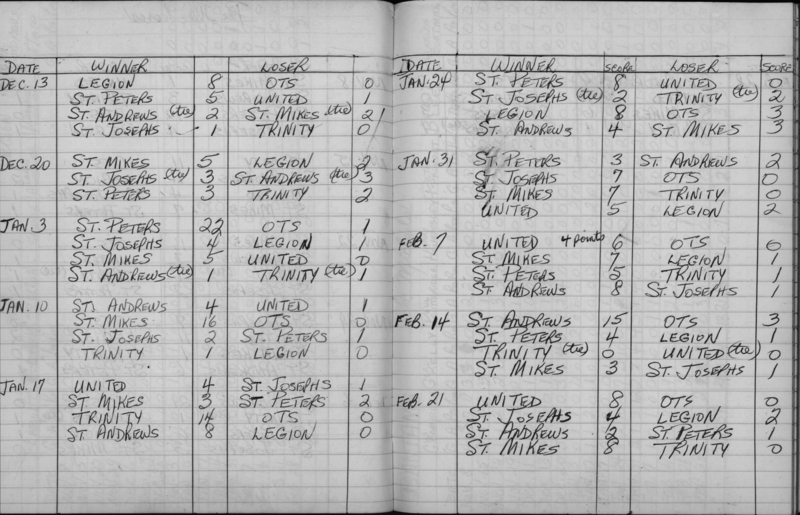 DATE WINNER LOSER
DEC. 13 LEGION 8 OTS 0
ST. PETERS 5 UNITED 1
ST. ANDREWS (tie) 2 ST. MIKES (tie) 2
ST. JOSEPHS 1 TRINITY 0
DEC. 20 ST. MIKES 5 LEGION 2
ST. JOSEPHS (tie) 3 ST. ANDREWS (tie) 3
ST. PETERS 3 TRINITY 2
JAN. 3 ST. PETERS 22 OTS 1
ST. JOSEPHS 4 LEGION 1
ST. MIKES 5 UNITED 0
ST. ANDREWS (tie) 1 TRINITY (tie) 1
JAN. 10 ST. ANDREWS 4 UNITED 1
ST. MIKES 16 OTS 0
ST. JOSEPHS 2 ST. PETERS 1
TRINITY 1 LEGION 0
JAN. 17 UNITED 4 ST. JOSEPHS 1
ST. MIKES 3 ST. PETERS 2
TRINITY 14 OTS 0
ST. ANDREWS 8 LEGION 0
DATE WINNER SCORE LOSER SCORE
JAN. 24 ST. PETERS 8 UNITED 0
ST. JOSEPHS (tie) 2 TRINITY (tie) 2
LEGION 8 OTS 3
ST. ANDREWS 4 ST. MIKES 3
JAN. 31 ST. PETERS 3 ST. ANDREWS 2
ST. JOSEPHS 7 OTS 0
ST. MIKES 7 TRINITY 0
UNITED 5 LEGION 2
FEB. 7 UNITED 4 points 6 OTS 0
ST. MIKES 7 LEGION 1
ST. PETERS 5 TRINITY 1
ST. ANDREWS 8 ST. JOSEPHS 1
FEB. 14 ST. ANDREWS 15 OTS 3
ST. PETERS 4 LEGION 1
TRINITY (tie) 0 UNITED (tie) 0
ST. MIKES 3 ST. JOSEPHS 1
FEB. 21 UNITED 8 OTS 0
ST. JOSEPHS 4 LEGION 2
ST. ANDREWS 2 ST. PETERS 1
ST. MIKES 8 TRINITY 0